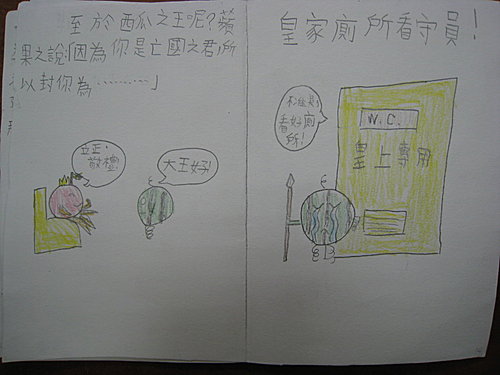 至於西瓜之王呢?蘋
果之說:「因為你是亡國之君,所
以封你為…………」
立正,
敬禮!
大王好!
皇家廁所看守員!
看好廁
所!
W.C.
皇上專用